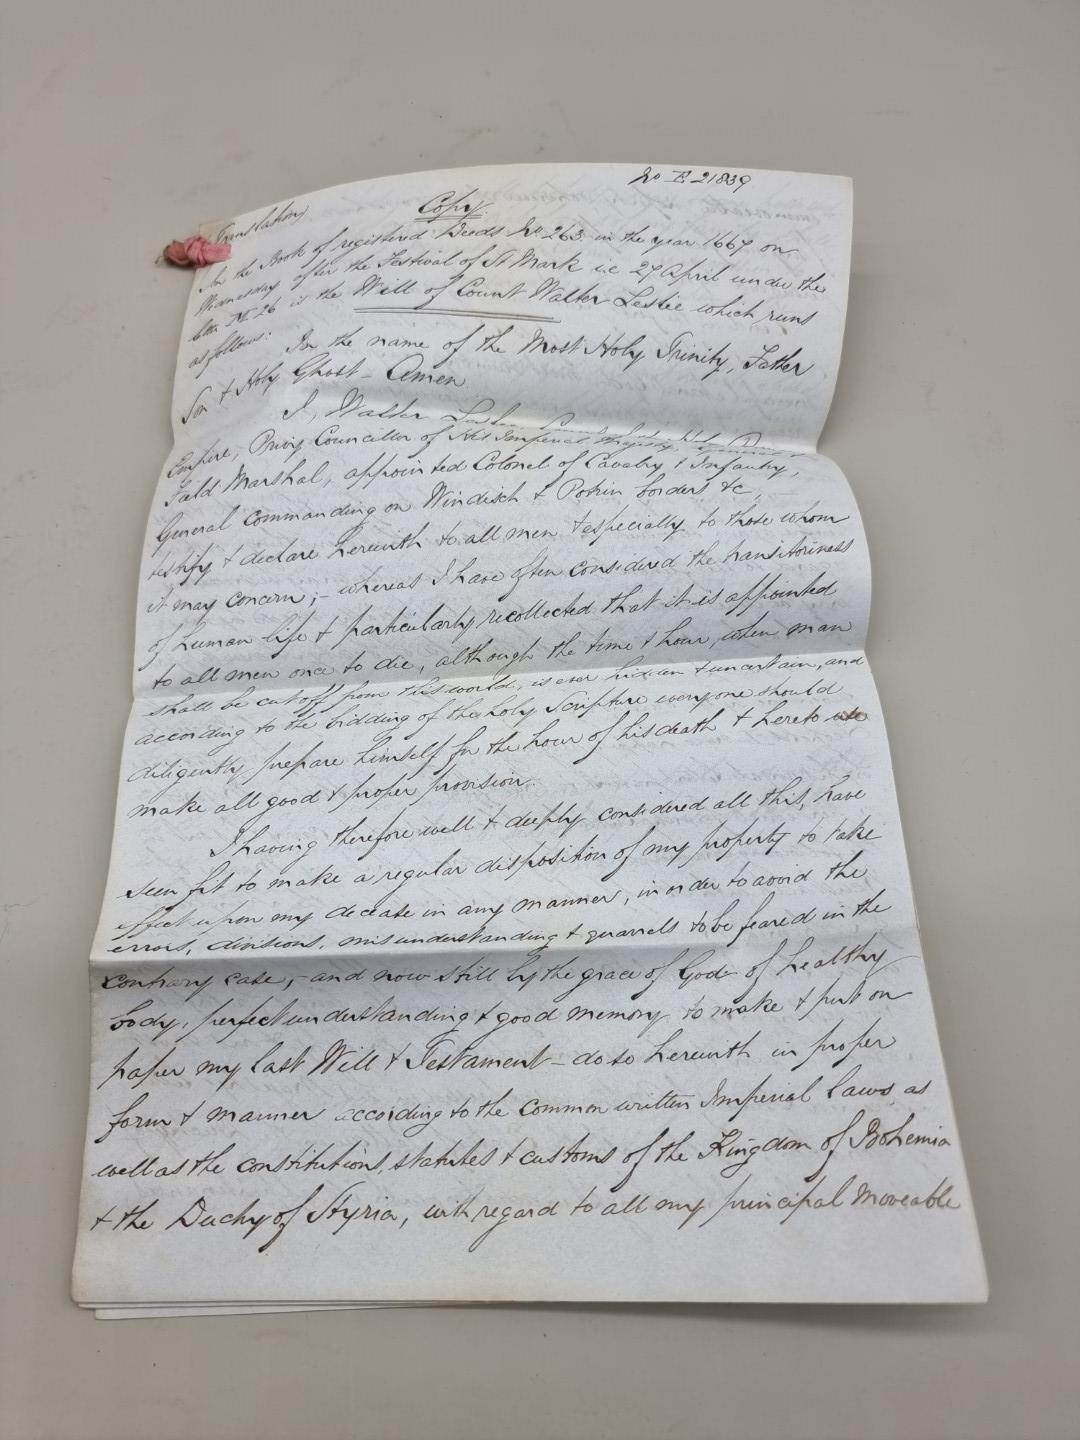 No E 21839
Translation
Copy.
In the Book of registered Deeds No 263 in the year 1667 on
Wednesday after the Festival of St Mark i.e 27 April under the
No 26 is the Will of Count Walter Leslie which runs
as follows:
In the name of the Most Holy Trinity, Father
Son & Holy Ghost – Amen
I, Walter
Empire, Privy Councillor of His Imperial Majesty,
Field Marshal, appointed Colonel of Cavalry & Infantry,
General commanding on Windisch & Petrin borders &c,
testify & declare herewith to all men & especially to those whom
it may concern; – whereas I have often considered the transitoriness
of human life & particularly recollected that it is appointed
to all men once to die, although the time & hour, when man
shall be cut off from this world, is ever hidden & uncertain, and
according to the bidding of the holy Scripture everyone should
diligently prepare himself for the hour of his death & hereto
make all good & proper provision.
I having therefore well & deeply considered all this, have
seen fit to make a regular disposition of my property to take
effect upon my decease in any manner, in order to avoid the
errors, divisions, misunderstanding & quarrels to be feared in the
contrary case; – and now still by the grace of God of healthy
body, perfect understanding & good memory to make & put on
paper my last Will & Testament – do so herewith in proper
form & manner according to the common written Imperial laws, as
well as the constitutions, statutes & customs of the Kingdom of Bohemia
& the Duchy of Styria, with regard to all my principal moveable